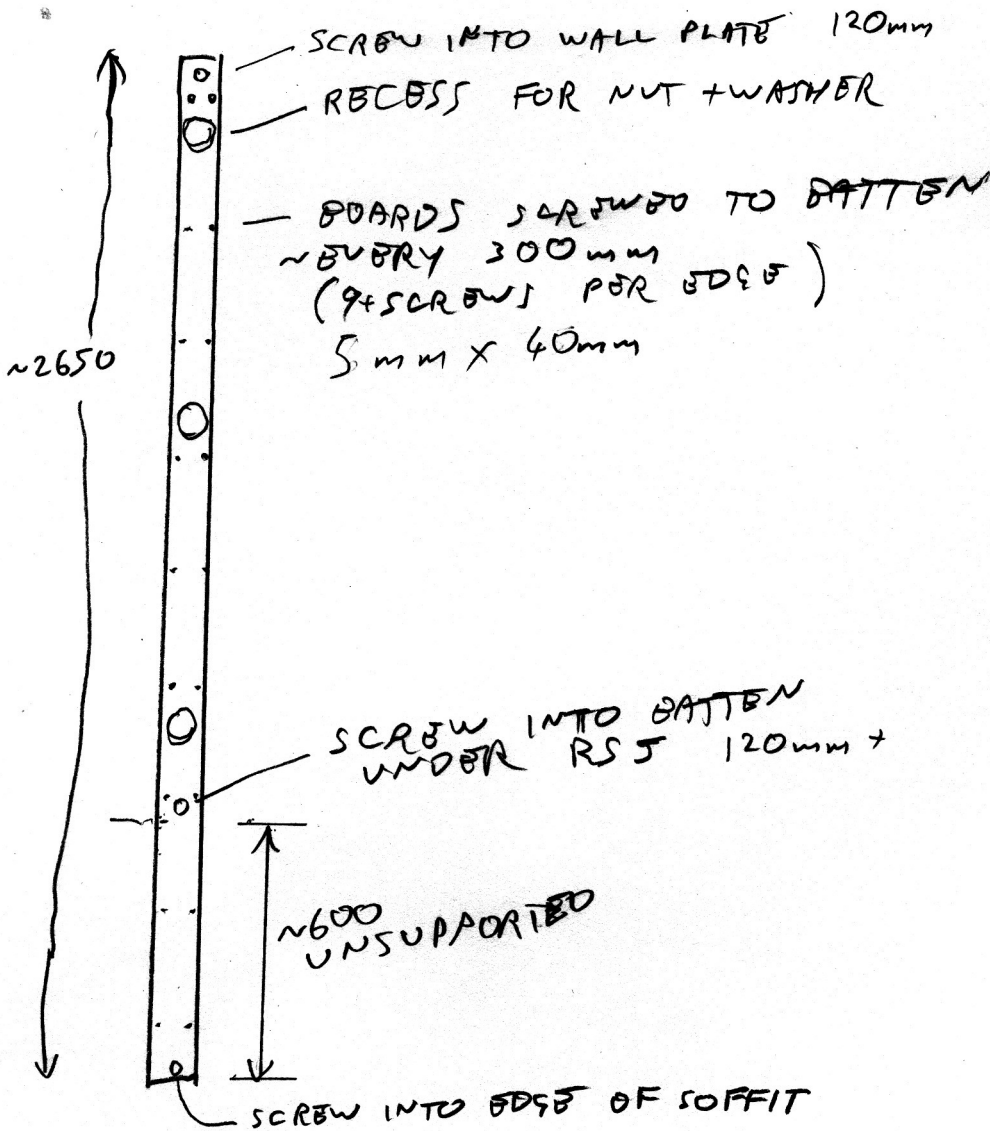 SCREW INTO WALL PLATE 120mm
RECESS FOR NUT + WASHER
BOARDS SCREWED TO BATTEN
~EVERY 300mm
(9+SCREWS PER EDGE)
5mm X 40mm
~2650
SCREW INTO BATTEN
UNDER RSJ 120mm +
~600
UNSUPPORTED
SCREW INTO EDGE OF SOFFIT